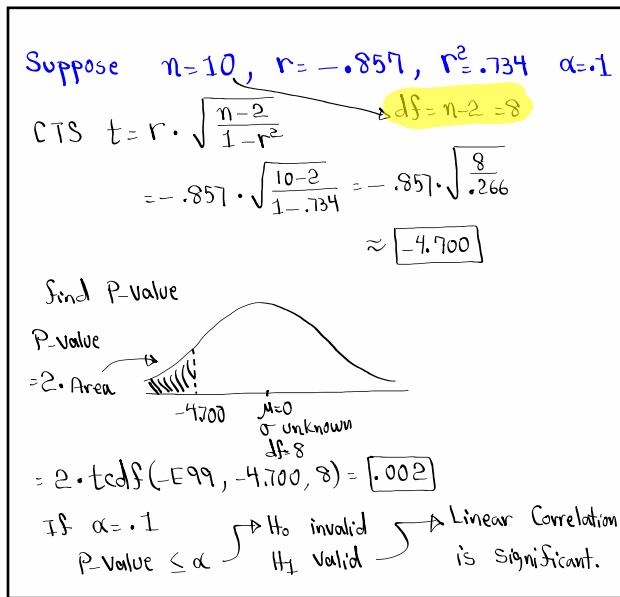 Suppose n=10, r=-.857, r²=.734 α=.1
df=n-2=8
CTS t=r·√(n-2/1-r²)
=-.857·√(10-2/1-.734)=-.857·√(8/.266)
≈ -4.700
find P-value
P-value
=2·Area
-4.700 μ=0
σ unknown
df=8
=2·tcdf(-E99,-4.700,8)=.002
If α=.1 H₀ invalid Linear Correlation
P-value ≤ α H₁ valid is significant.